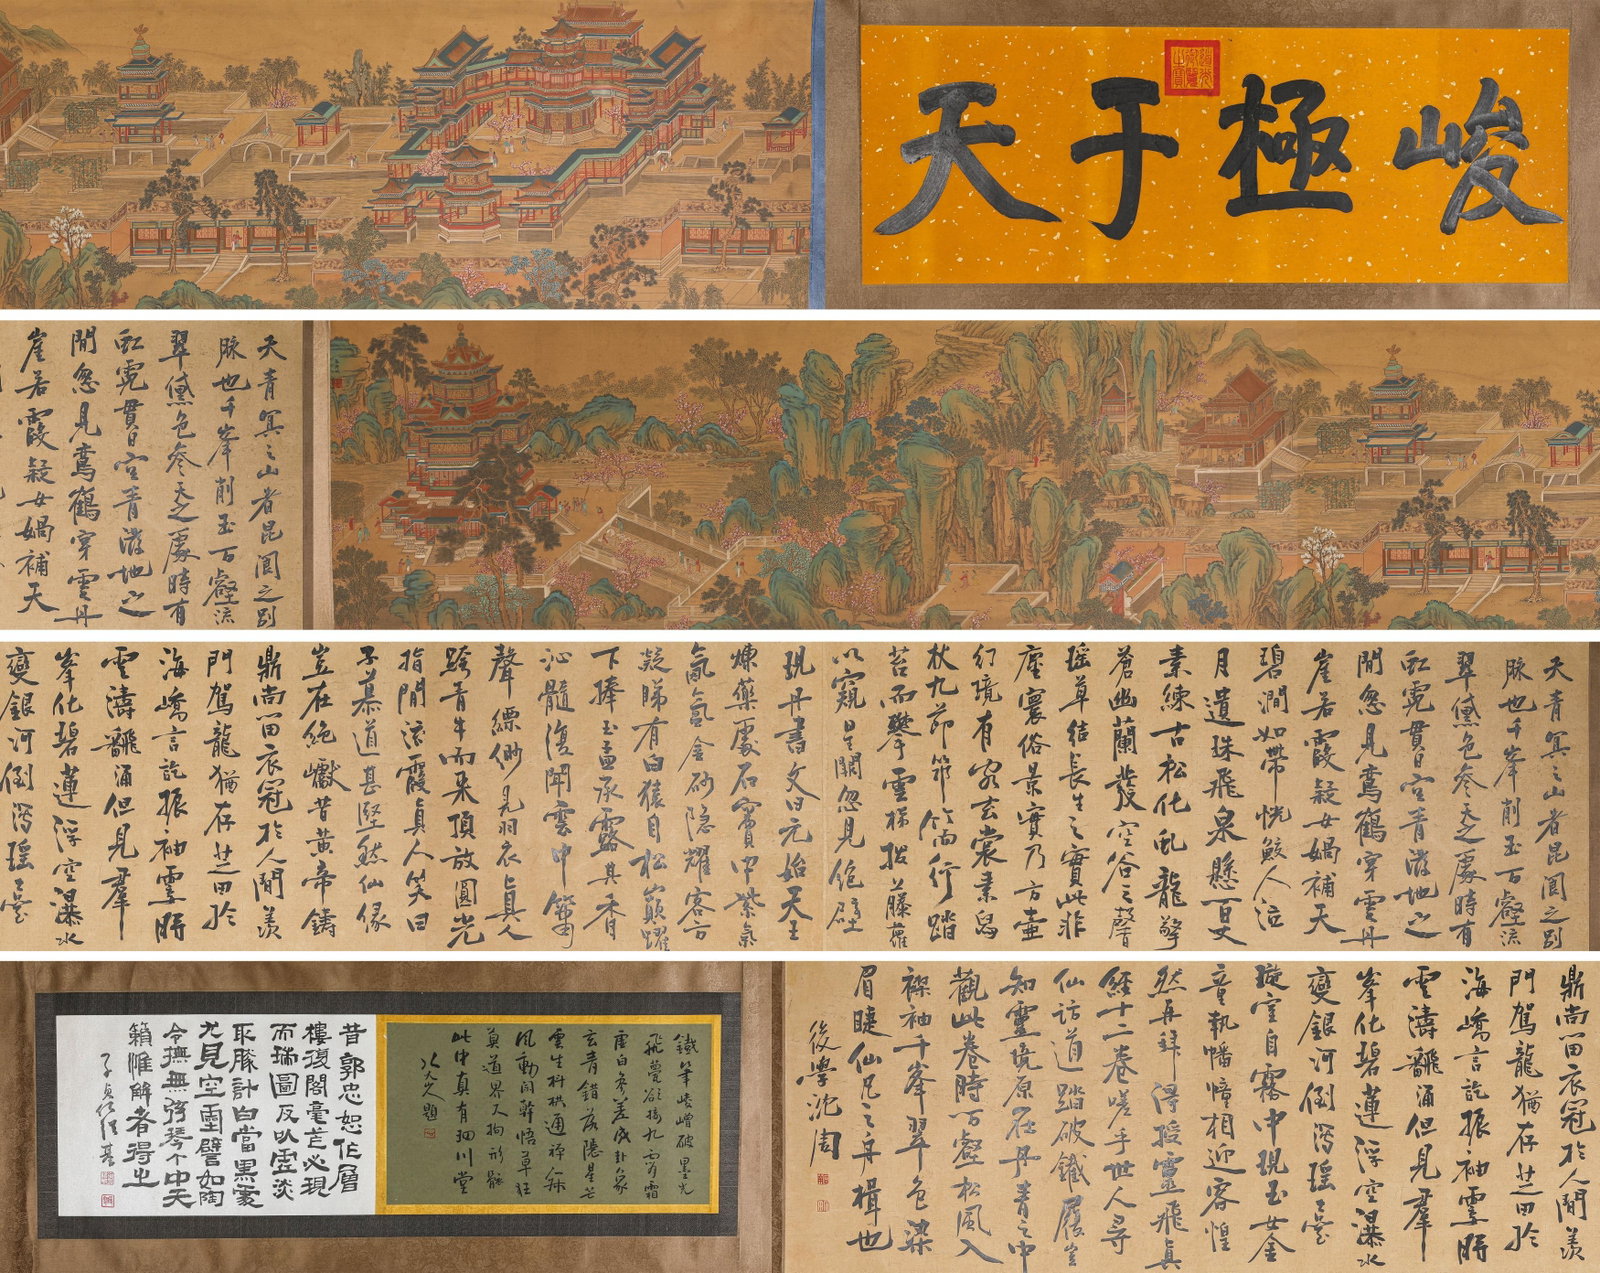 峻極于天
天青冥之山者昆閬之别
脉也千峯削玉百壑流
翠黛色參天之處時有
虹霓貫日宫菁游地之
閒忽見鸞鶴穿雲丹
崖若霞疑女媧補天
天青冥之山者昆閬之别
脉也千峯削玉百壑流
翠黛色參天之處時有
虹霓貫日宫菁游地之
閒忽見鸞鶴穿雲丹
崖若霞疑女媧補天
碧澗如帶恍鮫人泣
月遺珠飛泉懸百丈
素練古松化虬龍擎
蒼幽蘭發空谷之馨
瑶草結長生之實此非
塵寰俗景實乃方壺
幻境有客玄裳素舄
杖九節筇行踏
苔而攀雲梯拨藤蘿
以窺星闕忽見絶壁
現丹書文曰元始天王
煉藥處石竇中紫氣
氤氲金砂隐耀客方
凝睇有白猿自松巔躍
下捧玉盂承露其香
沁髓復聞雲中簫
聲縹缈見羽衣真人
跨青牛而来頂放圓光
指間流霞真人笑曰
子慕道甚堅然仙缘
豈在絶巘昔黄帝鑄
鼎尚留衣冠於人間羨
門駕龍猶存芝田於
海嶠言訖振袖霎時
雲濤翻涌但見羣
峯化碧蓮浮空瀑水
變銀河倒瀉瑶臺
鼎尚留衣冠於人間羨
門駕龍猶存芝田於
海嶠言訖振袖霎時
雲濤翻涌但見羣
峯化碧蓮浮空瀑水
變銀河倒瀉瑶臺
璇室自霧中現玉女金
童執幡幢相迎客惶
然再拜得授靈飛真
經十二卷嗟乎世人尋
仙访道踏破鐵履豈
知靈境原在丹青之中
觀此卷時百壑松風入
襟袖千峯翠色染
眉睫仙凡之舟楫也
後學沈周
鐵筆崚嶒破墨光
飛甍欲接九霄霜
唐白參差成卦象
玄青錯落隱星芒
雲生枓栱通禅籁
風動闌幹悟草狂
莫道界尺拘形骸
此中真有輞川堂
題
昔郭忠恕作層
樓復閣毫芒必現
而瑞圖反以虚淡
取勝計白當黑處
尤見空靈譬如陶
令撫無弦琴个中天
籟惟解者得之
子貞何绍基